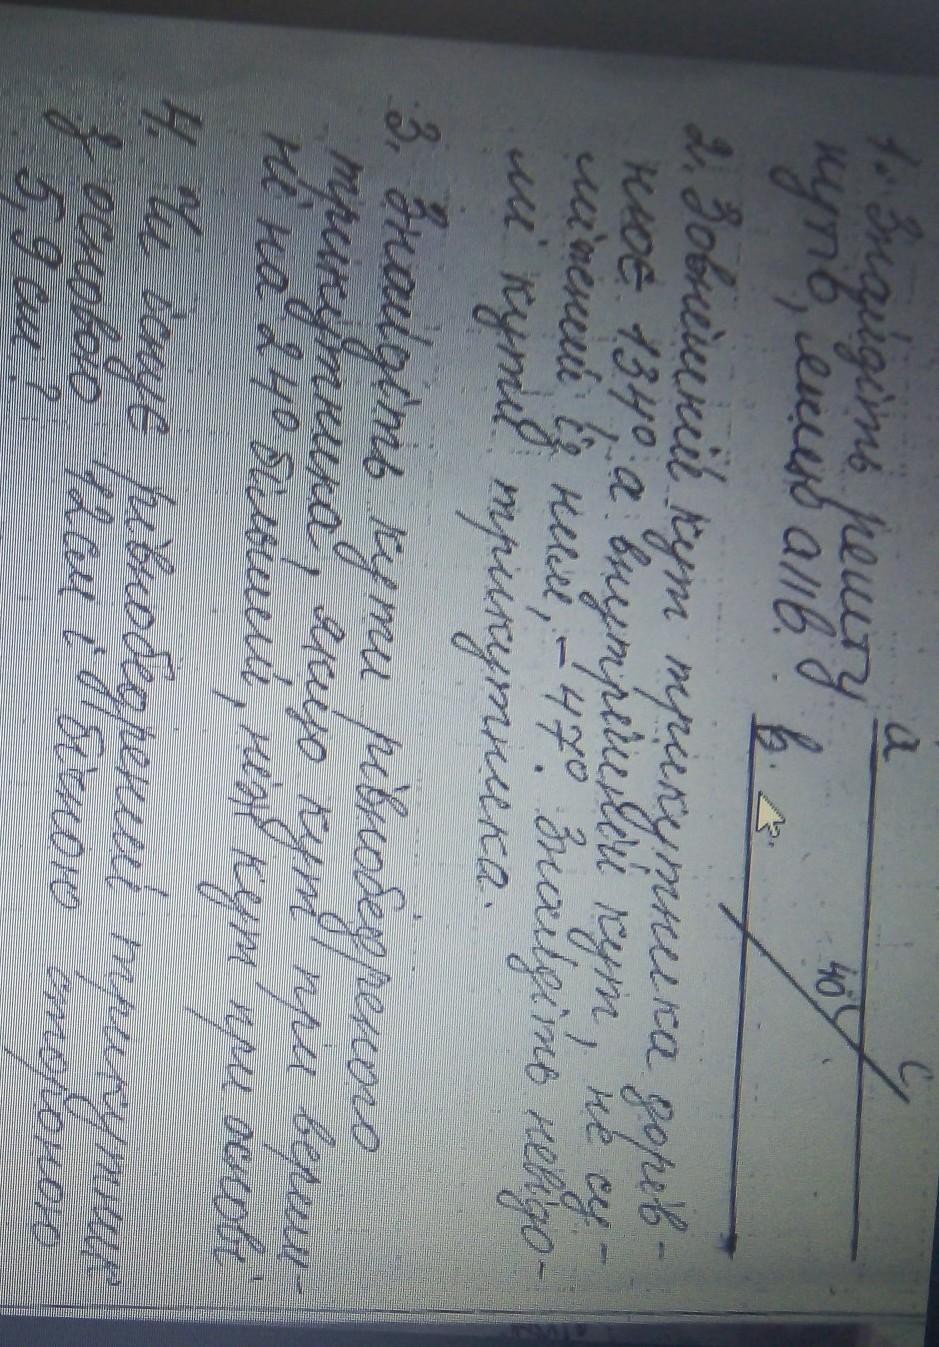 1. Знайдіть решту
кутів, якщо a||b.
a
c
40°
b.
2. Зовнішній кут трикутника дорів-
нює 134° а внутрішній кут, не су-
міжний із ним, - 47°. Знайдіть невідо-
мі кути трикутника.
3. Знайдіть кути рівнобедреного
трикутника, якщо кут при верши-
ні на 24° більший, ніж кут при основі.
4. Чи існує рівнобедрений трикутник
з основою 12см і бічною стороною
5,9 см?